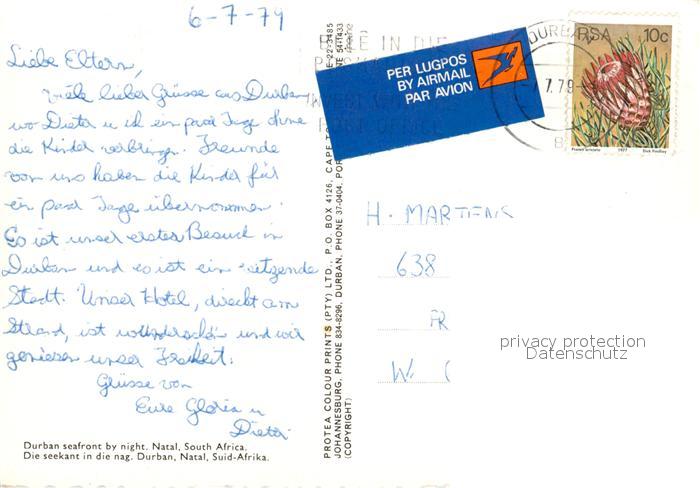 6-7-79
Liebe Eltern,
viele liebe Grüsse aus Durban
wo Dieter u ich ein paar Tage ohne
die Kinder verbringen. Freunde
von uns haben die Kinder für
ein paar Tage übernommen.
Es ist unser erster Besuch in
Durban und es ist ein reitzende
Stadt. Unser Hotel, direckt am
Strand, ist wunderschön und wir
geniesen unser Freiheit.
Grüsse von
Eure Gloria u
Dieter
Durban seafront by night. Natal, South Africa.
Die seekant in die nag. Durban, Natal, Suid-Afrika.
PROTEA COLOUR PRINTS (PTY) LTD., P.O. BOX 4126, CAPE
JOHANNESBURG, PHONE 834-8296, DURBAN, PHONE 37-0404,
(COPYRIGHT)
22-3485
541433
PER LUGPOS
BY AIRMAIL
PAR AVION
IN DIE
POST OFFICE
DURBAN
7.79
RSA 10c
Protea aristata 1977 Dick Findlay
H. MARTENS
638
FR
W.
privacy protection
Datenschutz